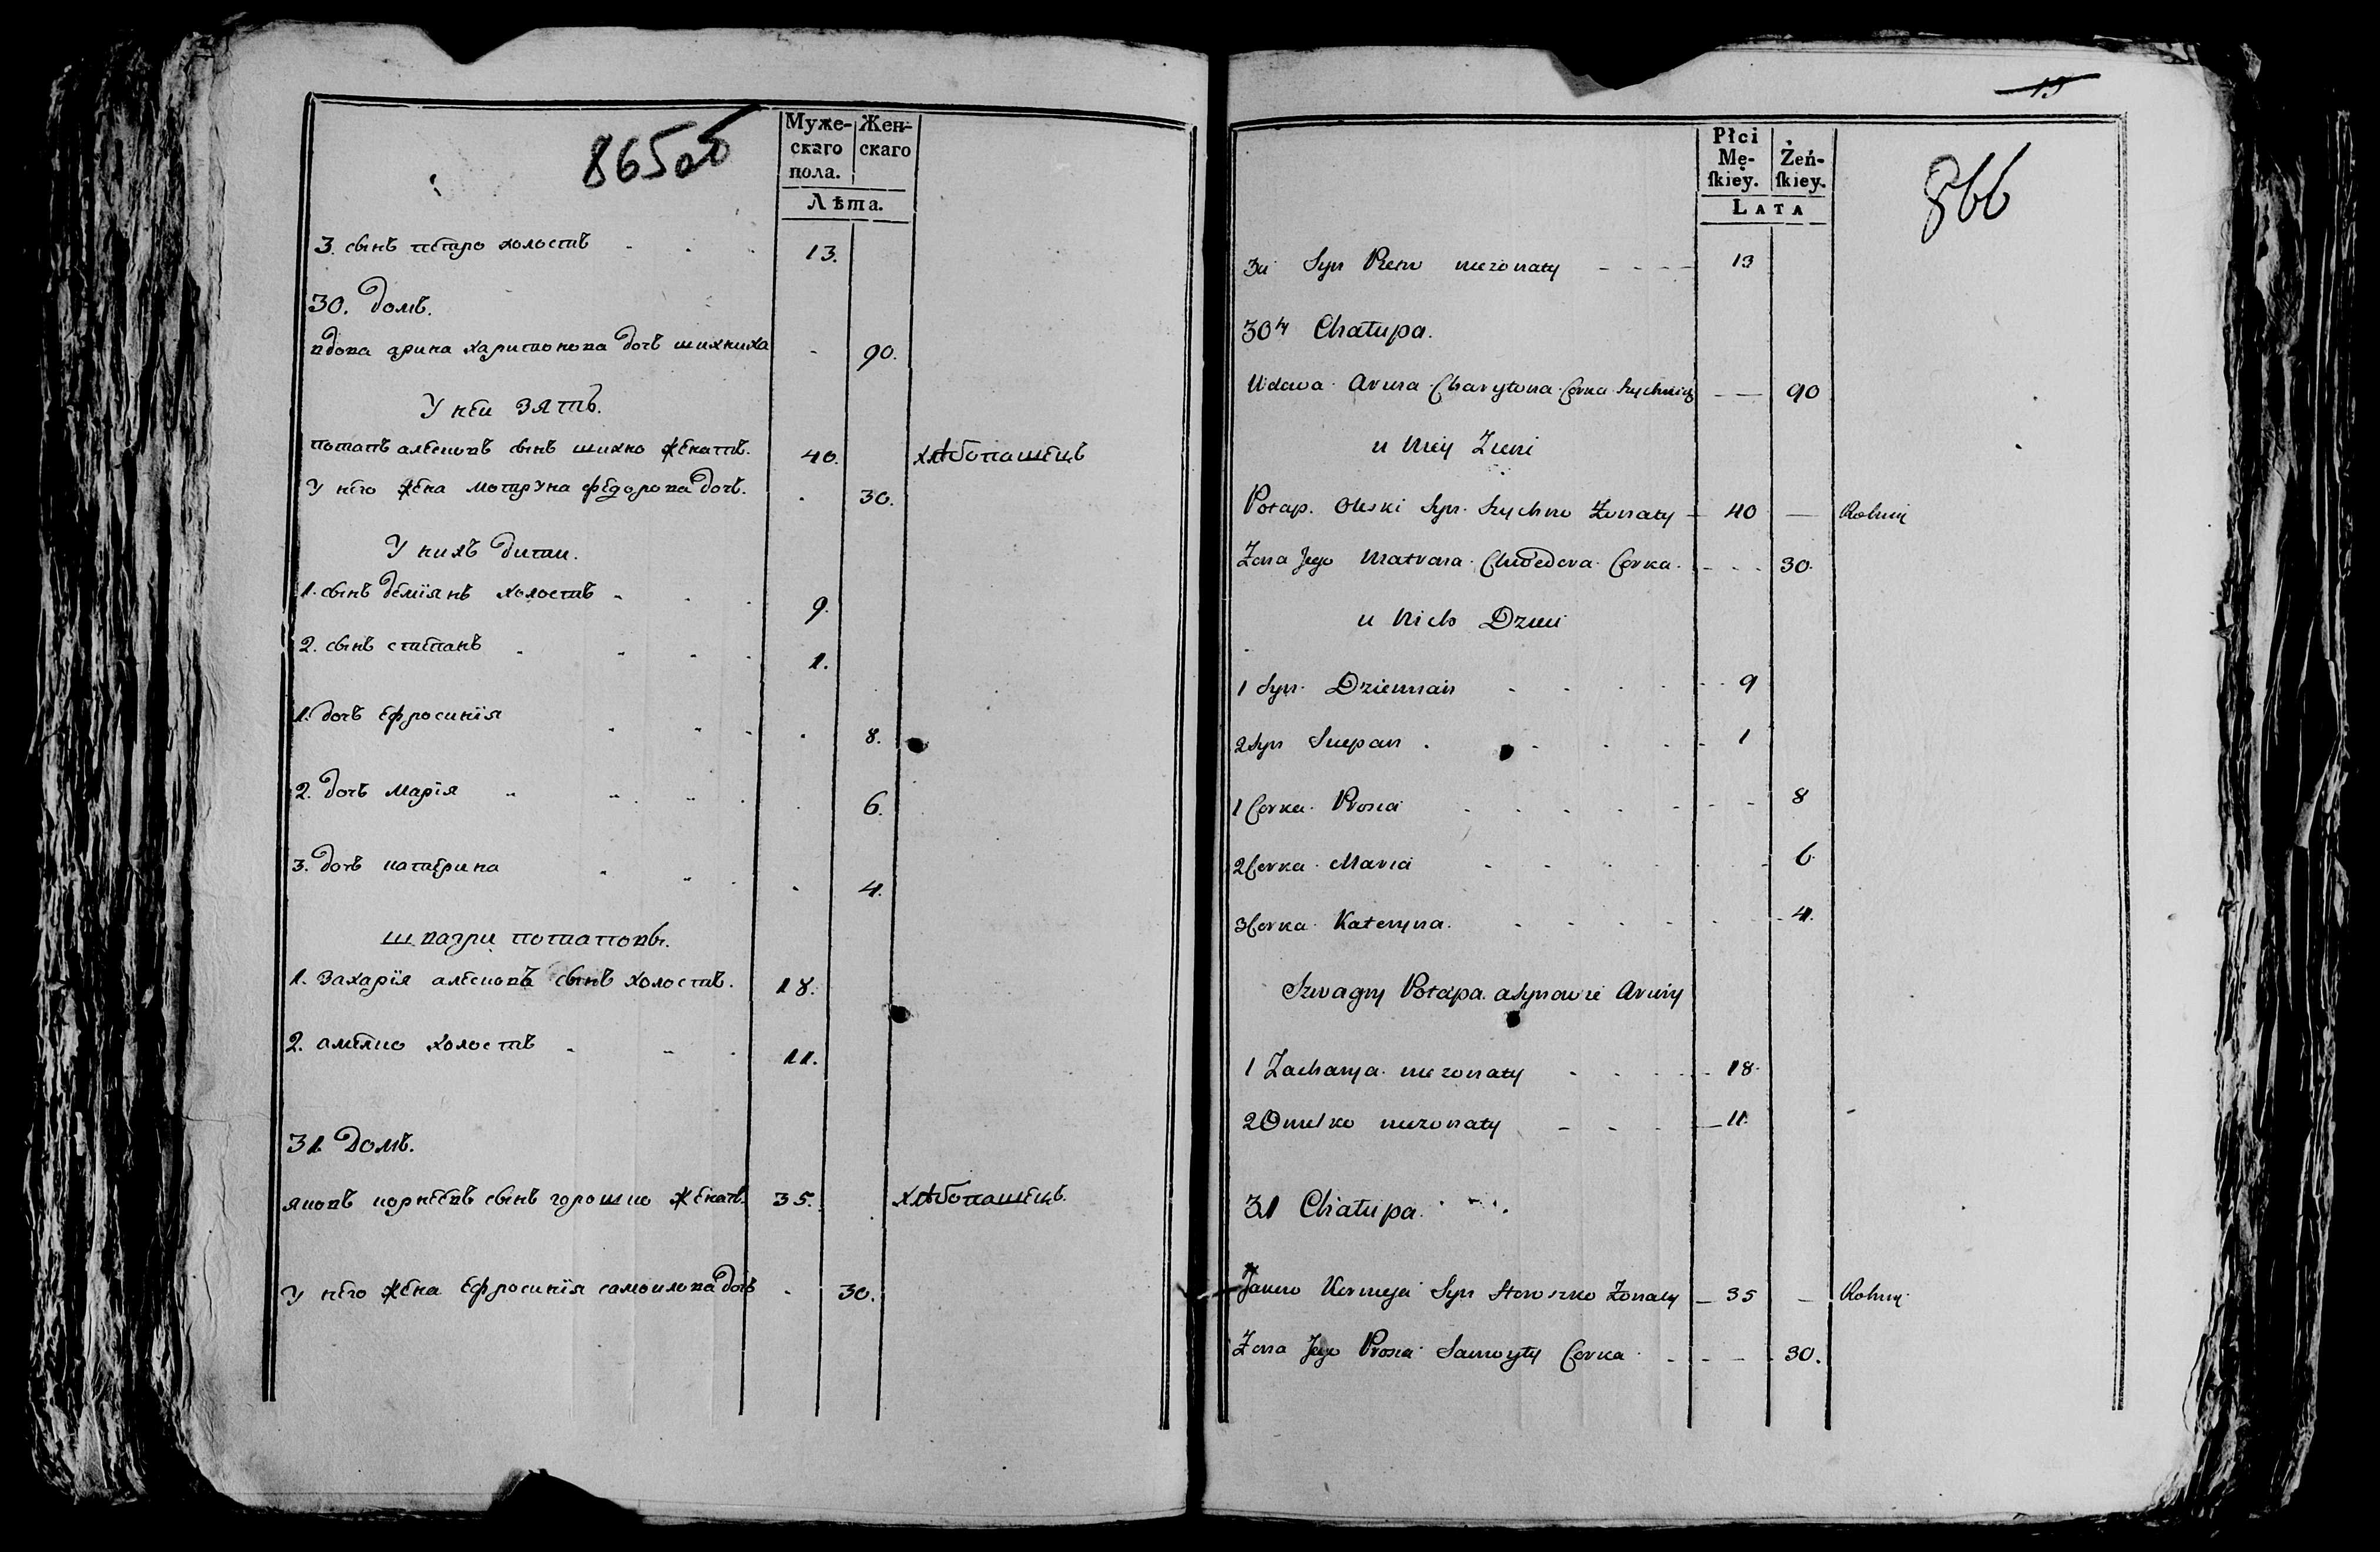 865об
Муже-
скаго
пола.
Жен-
скаго
Лѣта.
3. сынъ петро холостъ 13.
30. домъ.
вдова арина харитонова дочъ шихниха 90.
У неи зять.
потапъ алексювъ сынъ шихно женатъ. 40. хлѣбопашецъ
У него жена мотруна федорова дочъ. 30.
У нихъ дити.
1. сынъ деміянъ холостъ 9.
2. сынъ степанъ 1.
1. дочъ ефросинія 8.
2. дочъ марія 6.
3. дочъ катерина 4.
швагри потаповы.
1. захарія алексювъ сынъ холостъ. 18.
2. амелко холостъ 11.
31 домъ.
яковъ корнеевъ сынъ горошко женатъ 35. хлѣбопашецъ.
У него жена ефросинія самоилова дочъ 30.
15
866
Płci
Mę-
ſkiey.
Żeń-
ſkiey.
LATA
3ci Syn Petro niezonaty 13
30ta Chałupa.
Wdowa Aryna Charytona Corka 90
u Niey Zieć
Potap Syn Szychno Zonaty 40 Rolnik
Zona Jego Matrona Chwedora Corka 30
u Nich Dzieci
1 Syn Dziemian 9
2 Syn Sciepan 1
1 Corka Prosia 8
2 Corka Maria 6
3 Corka Kateryna. 4.
Szwagry Potapa a Synowie Aryny
1 Zacharya niezonaty 18
2 Omelko niezonaty 11
31 Chałupa.
Jakow Korneja Syn Zonaty 35 Rolnik
Zona Jego Prosia Samoyły Corka 30.